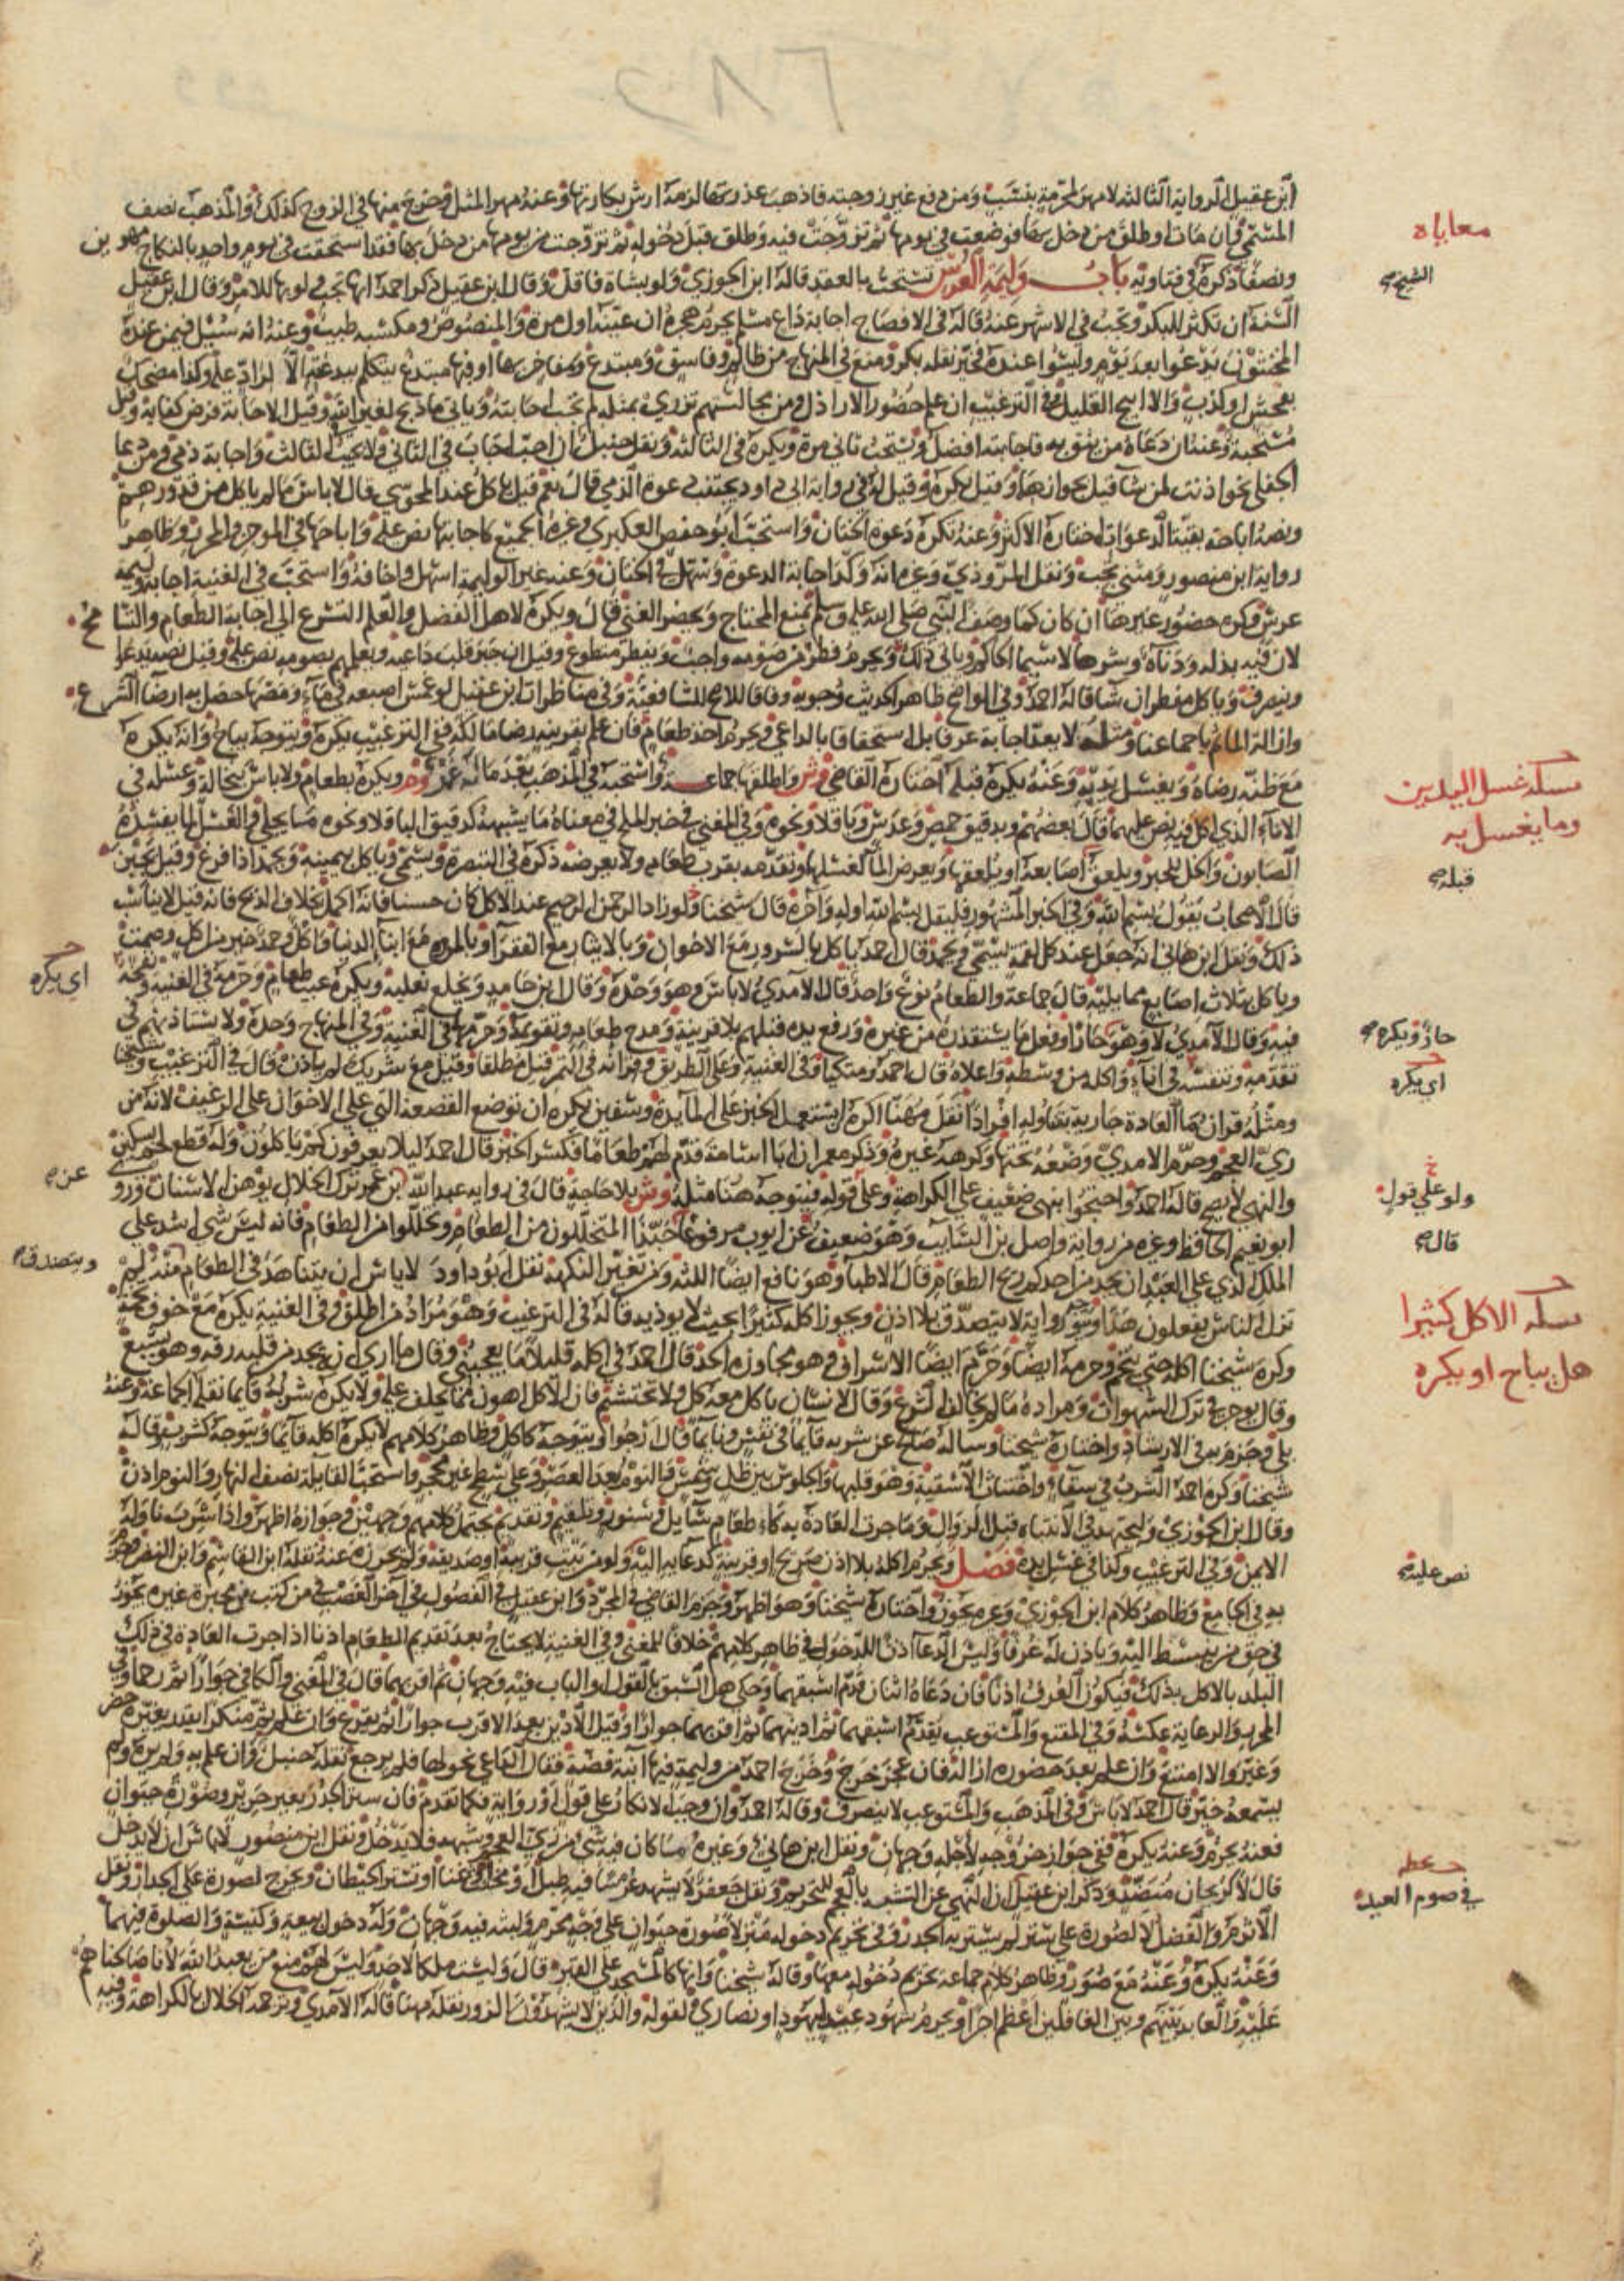 ابن عقيل الرواية الثالثة لا مهر لمحرمة بنسب ومن دفع غير زوجته فاذهب عذرتها لزمه ارش بكارتها وعنه مهر المثل وخرج منها في الزوج كذلك والمذهب نصف
المسمى فان مات او طلق من دخل بها فوضعت في يومها ثم تزوجت فيه وطلق قبل دخوله ثم تزوجت من يومها من دخل بها فقد استحقت في يوم واحد بالنكاح مهرين
معاياه
ونصفا ذكره في فتاويه باب وليمة العرس تستحب بالعقد قاله ابن الجوزي ولو بشاة فاقل وقال ابن عقيل ذكر احمد انها تجب ولو بها للامر وقال ابن عقيل
الشيخ صح
السنة ان تكثر للبكر وتجب في الاشهر عنه قاله في الافصاح اجابة داع مسلم يحرم هجره ان عينه اول مرة والمنصوص ومكسبه طيب وعنه انه سئل فيمن عنده
المخنثون يدعوا بعد يوم وليسوا عنده فخير نقله بكر ومنع في المنهاج من ظالم وفاسق ومبتدع ومفاخر بها او فيها مبتدع يتكلم ببدعته الا لراد عليه وكذا مضحك
بفحش او كذب والا ابيح القليل وفي الترغيب ان علم حضور الاراذل ومن مجالستهم تزري بمثله لم تجب اجابته وياتي ما ذبح لغير الله وقيل الاجابة فرض كفاية وقيل
مستحبة وعنه ان دعاه من يثق به فاجابته افضل ويستحب ثاني مرة ويكره في الثالثة ونقل حنبل ان احب اجاب في الثاني ولا يجب الثالث واجابة ذمي ومن دعا
الجفلى نحو اذنت لمن شا قيل بجوازها وقيل يكره وقيل له في رواية ابي داود يجيب دعوة الذمي قال نعم قيل ياكل عند المجوسي قال لا باس ما لم ياكل من قدورهم
ونصه اباحة بقية الدعوات اختاره الاكثر وعنه تكره دعوة الختان واستحب ابو حفص العكبري وغيره الجميع كاجابتها نص عليه واباحها في الموجز والمحرر وظاهر
رواية ابن منصور ومثنى يجب ونقل المروذي وغيره انه وكد اجابة الدعوة وسهل في الختان وعنه غير الوليمة اسهل واخاف واستحب في الغنية اجابة وليمة
عرس وكره حضور غيرها ان كان كما وصف النبي صلى الله عليه وسلم يمنع المحتاج ويحضر الغني قال ويكره لاهل الفضل والعلم التسرع الى اجابة الطعام والتسامح
لان فيه بذلة ودناءة وشرها لا سيما الحاكم وياتي ذلك ويحرم فطر من صومه واجب ويفطر متطوع وقيل ان جبر قلب داعيه ويعلمهم بصومه نص عليه وقيل نصه يدعوا
وينصرف وياكل مفطر ان شا قاله احمد وفي الواضح ظاهر الحديث وجوبه وفاقا للاصح للشافعية وفي مناظرات ابن عقيل لو غمس اصبعه في ماء ومصها حصل به ارضا الشرع
وازالة الماثم باجماعنا ومثله لا يعد اجابة عرفا بل استخفافا بالداعي ويحرم اخذ طعام فان علم بقرينة رضا مالكه ففي الترغيب يكره ويتوجه يباح وانه يكره
مع ظنه رضاه ويغسل يديه وعنه يكره قبله اختاره القاضي وش واطلقها جماعة واستحبه في المذهب بعد ما له غمر وخر ويكره بطعام ولا باس بنخالة وغسله في
مسئلة غسل اليدين
وما يغسل به
الاناء الذي اكل فيه نص عليهما قال بعضهم وبدقيق حمص وعدس وباقلا ونحوه وفي المغني في خبر الملح في معناه ما يشبهه كدقيق الباقلا ونحوه مما يجلي والغسل لما يفسده
الصابون واكل للخبز ويلعق اصابعه او يلعقها ويعرض الما لغسلها وتقدمه بقرب طعامه ولا يعرضه ذكره في التبصرة ويسمي وياكل بيمينه ويحمد اذا فرغ وقيل يجبن
قبله صح
قال الاصحاب يقول بسم الله وفي الخبر المشهور فليقل بسم الله اوله واخره قال شيخنا ولو زاد الرحمن الرحيم عند الاكل كان حسنا فانه اكمل بخلاف الذبح فانه قيل لا يناسب
ذلك ونقل ابن هاني انه جعل عند كل لقمة يسمي ويحمد قال احمد ياكل بالسرور مع الاخوان وبالايثار مع الفقرا وبالمروة مع ابنا الدنيا واكل وحمد خير من اكل وصمت
اي يكره
وياكل بثلاث اصابع مما يليه قال جماعة والطعام نوع واحد قال الآمدي لا باس وهو وحده وقال ابن حامد ويخلع نعليه ويكره عيب طعام وحرمه في الغنية ونفخه
فيه وقال الآمدي لا وهو حار او فعل ما يستقذره من غيره ورفع يده قبلهم بلا قرينة ومدح طعامه وتقويمه وحرمها في الغنية وفي المنهاج وحده ولا يستاذنهم في
حار ويكره صح
تقديمه وتنفسه في انائه واكله من وسطه واعلاه قال احمد ومتكيا وفي الغنية وعلى الطريق وقرانه في التمر قيل مطلقا وقيل مع شريك لم ياذن قال في الترغيب وشيخنا
اي يكره
ومثله قران ما العادة جارية بتناوله افرادا نقل مهنا اكره ان يستعمل الخبز على المايدة وسفين يكره ان توضع القصعة التي على الاخوان على الرغيف لانه من
زي العجم وحرمه الامدي وضعه تحتها وكرهه غيره وذكر معمر ان ابا اسامة قدم لهم طعاما فكسر الخبز قال احمد ليلا يعرفون كم ياكلون وله قطع لحم بسكين
والنهي لا يصح قاله احمد واحتجوا بنهي ضعيف على الكراهة وعلى قوله فيتوجه هنا مثله وش بلا حاجة قال في رواية عبدالله بن عمر ترك الخلال يوهن الاسنان وروى
عن صح
ولو على قول
ابو نعيم الحافظ وغيره من رواية واصل بن السائب وهو ضعيف عن ابي ايوب مرفوعا حبذا المتخللون من الطعام وتخللوا من الطعام فانه ليس شي اشد على
قال صح
الملك الذي على العبد ان يجد من احدكم ريح الطعام قال الاطبا وهو نافع ايضا اللثة ومن تغير النكهة نقل ابو داود لا باس ان يتناهد في الطعام منذ لم
ويتصدق صح
تزل الناس يفعلون هذا ويتوجه رواية لا يتصدق بلا اذن ويجوز اكله كثيرا بحيث لا يوذيه قاله في الترغيب وهو مراد من اطلق وفي الغنية يكره مع خوف تخمة
مسئلة الاكل كثيرا
هل يباح او يكره
وكره شيخنا اكله حتى يتخم وحرمه ايضا وحرم ايضا الاسراف وهو مجاوزة الحد قال احمد في اكله قليلا ما يعجبني وقال ما ارى ان يجد من قلبه رقة وهو يشبع
وقال يوجر في ترك الشهوات ومراده ما لم يخالف الشرع وقال الانسان ياكل معه كل ولا تحتشم فان الاكل اهون مما يحلف عليه ولا يكره شربه قائما نقله الجماعة وعنه
بلى وجزم به في الارشاد واختاره شيخنا وساله صالح عن شربه قائما في نفس ونائما قال ارجوا ويتوجه كاكل وظاهر كلامهم لا يكره اكله قائما ويتوجه كشرب وقاله
شيخنا وكره احمد الشرب في سقاء واختناث الاسقية وهو قلبها والجلوس بين ظل وشمس والنوم بعد العصر وعلى سطح غير محجر واستحب القايلة نصف النهار والنوم اذن
وقال ابن الجوزي وليجتهد في الانتباه قبل الزوال وما جرت العادة به كاطعام سايل وسنور وتلقيم وتقديم يحتمل كلامهم وجهين وجوازه اظهر واذا شرب ناوله
الايمن وفي الترغيب وكذا في غسل يده فصل ويحرم اكله بلا اذن صريح او قرينة كدعايه اليه ولو من بيت قريبه او صديقه ولم يحرزه عنه نقله ابن القاسم وابن النضر وجزم
نص عليه صح
به في الجامع وظاهر كلام ابن الجوزي وغيره يجوز واختاره شيخنا وهو اظهر وجزم القاضي في المجرد وابن عقيل في الفصول في آخر الغصب فيمن كتب من محبرة غيره يجوز
في حق من ينبسط اليه وياذن له عرفا وليس الدعا اذنا للدخول في ظاهر كلامهم خلافا للمغني وفي الغنية لا يحتاج بعد تقديم الطعام اذنا اذا جرت العادة في ذلك
البلد بالاكل بذلك فيكون العرف اذنا فان دعاه اثنان قدم اسبقهما وحكي هل السبق بالقول او الباب فيه وجهان ثم اقربهما قال في المغني والكافي جوارا ثم رحما وفي
المحرر والرعاية عكسه وفي المقنع والمستوعب يقدم اسبقهما ثم ادينهما ثم اقربهما جوارا وقيل الادين بعد الاقرب جوارا ثم يقرع وان علم ثم منكرا يقدر يغيره حضر
وغيره والا امتنع وان علم بعد حضوره ازاله فان عجز خرج وخرج احمد من وليمة فيها آنية فضة فقال الداعي نحولها فلم يرجع نقله حنبل وان علم به ولم يره ولم
يسمعه خير قال احمد لا باس وفي المذهب والمستوعب لا ينصرف وقاله احمد وان وجب الانكار على قول او رواية فكما تقدم فان ستر الجدر بغير حرير وصورة حيوان
فعنه يحرم وعنه يكره ففي جواز خروجه لاجله وجهان ونقل ابن هاني وغيره ما كان فيه شي من زي العجم وشبهه فلا يدخل ونقل ابن منصور لا باس ان لا يدخل
قال لا كريحان منضد وذكر ابن عقيل ان النهي عن التشبه بالعجم للتحريم ونقل جعفر لا يشهد عرسا فيه طبل او مخنث او غنا او تستر الحيطان ويخرج لصورة على الجدار ونقل
خطه
في صوم العيد
الاثرم والفضل لا لصورة على ستر لم يستر به الجدر وفي تحريم دخوله منزلا صورة حيوان على وجه محرم ولبثه فيه وجهان وله دخول بيعة وكنيسة والصلوة فيهما
وعنه يكره وعنه مع صور وظاهر كلام جماعة تحريم دخوله معها وقاله شيخنا وانها كالمسجد على القبر قال وليست ملكا لاحد وليس لهم منع من يعبد الله لانا صالحناهم
عليه والعابد بينهم وبين الغافلين اعظم اجرا ويحرم شهود عيد ليهود او نصارى لقوله والذين لا يشهدون الزور نقله مهنا وقاله الآمدي وترجمه الخلال بالكراهة وفيه